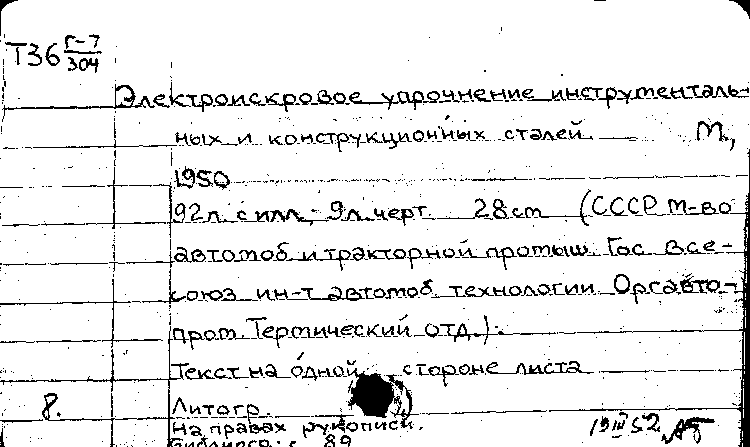 Т36 Г-7
304
Электроискровое упрочнение инструменталь-
ных и конструкционных сталей. М.,
1950
92л. с илл., 9л. черт. 28см (СССР М-во
автомоб. и тракторной промыш. Гос. Все-
союз. ин-т автомоб. технологии Оргавто-
пром. Термический отд.).
Текст на одной стороне листа
8. Литогр.
На правах рукописи.
Библиогр.: с. 89
19 III 52.